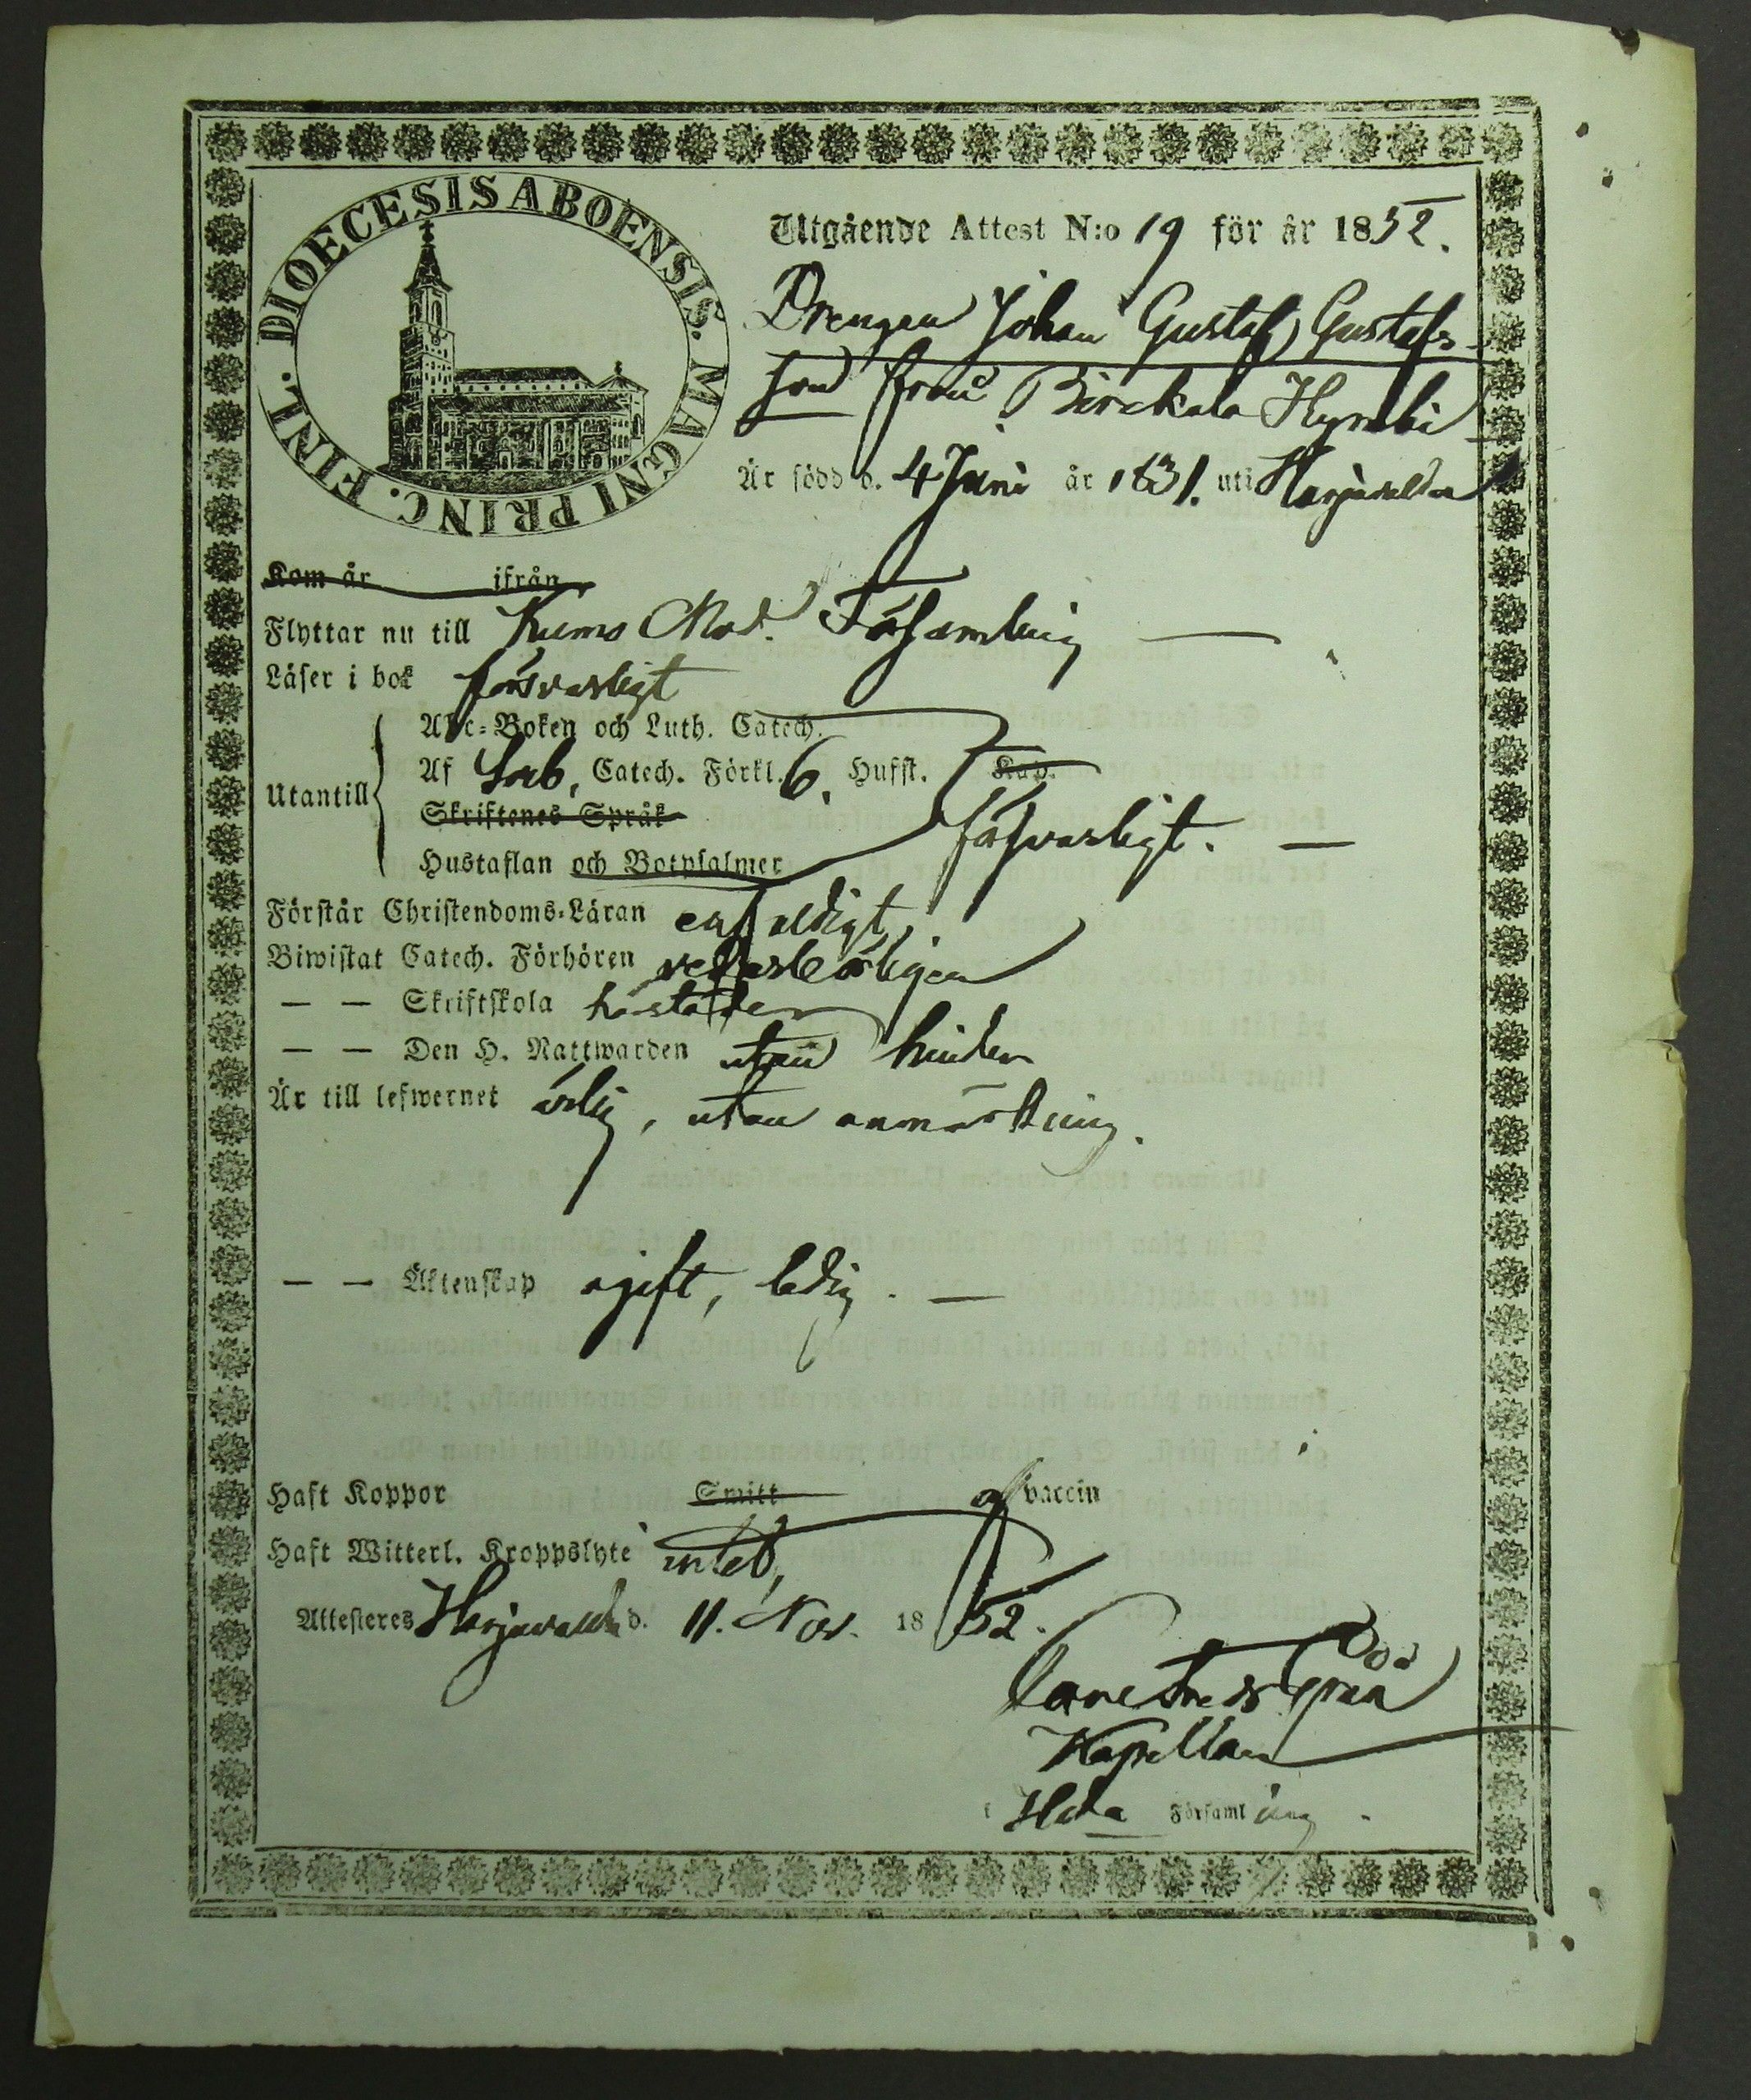 DIOECESIS ABOENSIS. MAGNI PRINC. FINL.
Utgående Attest N:o 19 för år 1852.
Drengen Johan Gustaf Gustafs-
son från Birckala Hyrcki
Är född d. 4 Juni år 1831. uti Harjavalta
Kom år ifrån
Flyttar nu till Kumo Mod. Församling
Läser i bok försvarligt
Utantill
Abc-Boken och Luth. Catech.
Af Sveb. Catech. Förkl. 6. Hufst. Kap.
Skriftenes Språk
Hustaflan och Botpsalmer försvarligt.
Förstår Christendoms-Läran enfaldigt
Biwistat Catech. Förhören vederbörligen
— — Skriftskola
— — Den H. Nattwarden utan hinder
Är till lefwernet ärlig, utan anmärkning.
— — Äktenskap ogift, ledig.
Haft Koppor Smitt af vaccin
Haft Witterl. Kroppslyte intet,
Attesteres Harjavalta d. 11. Nov. 1852.
Kapellan
i Församling